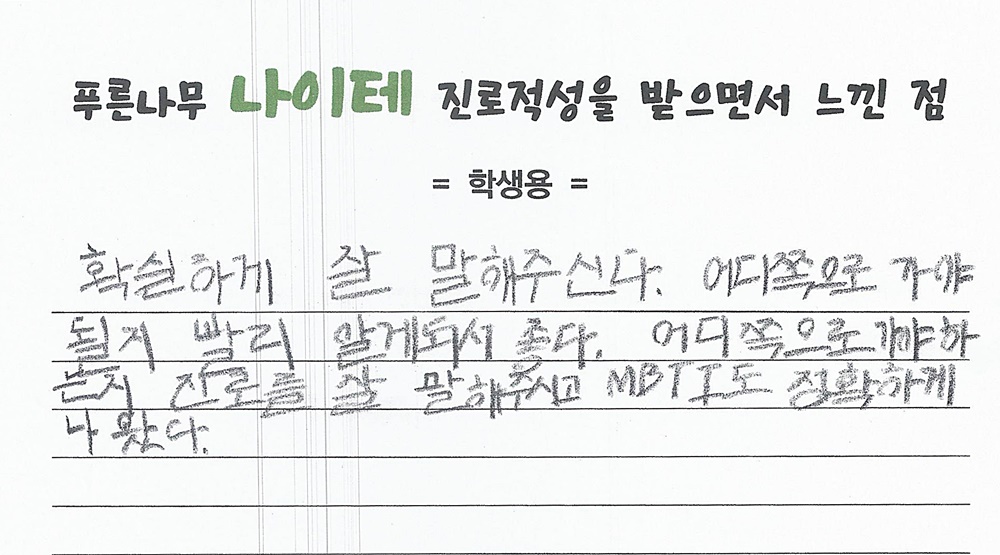 푸른나무 나이테 진로적성을 받으면서 느낀 점
= 학생용 =
확실하게 잘 말해주신다. 어디쪽으로 가야
될지 빨리 알게되서 좋다. 어디쪽으로 가야하
는지 진로를 잘 말해주시고 MBTI도 정확하게
나왔다.